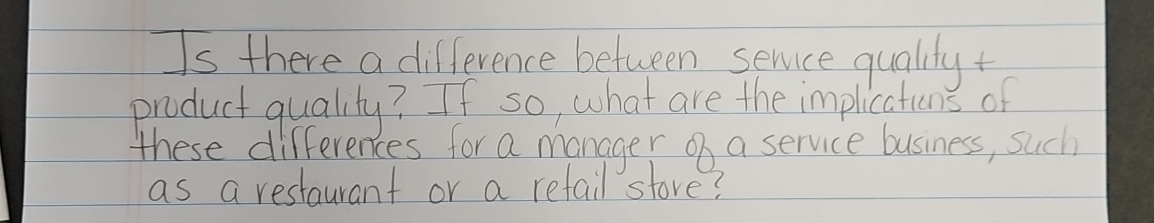 Is there a difference between service quality +
product quality? If so, what are the implications of
these differences for a manager of a service business, such
as a restaurant or a retail store?